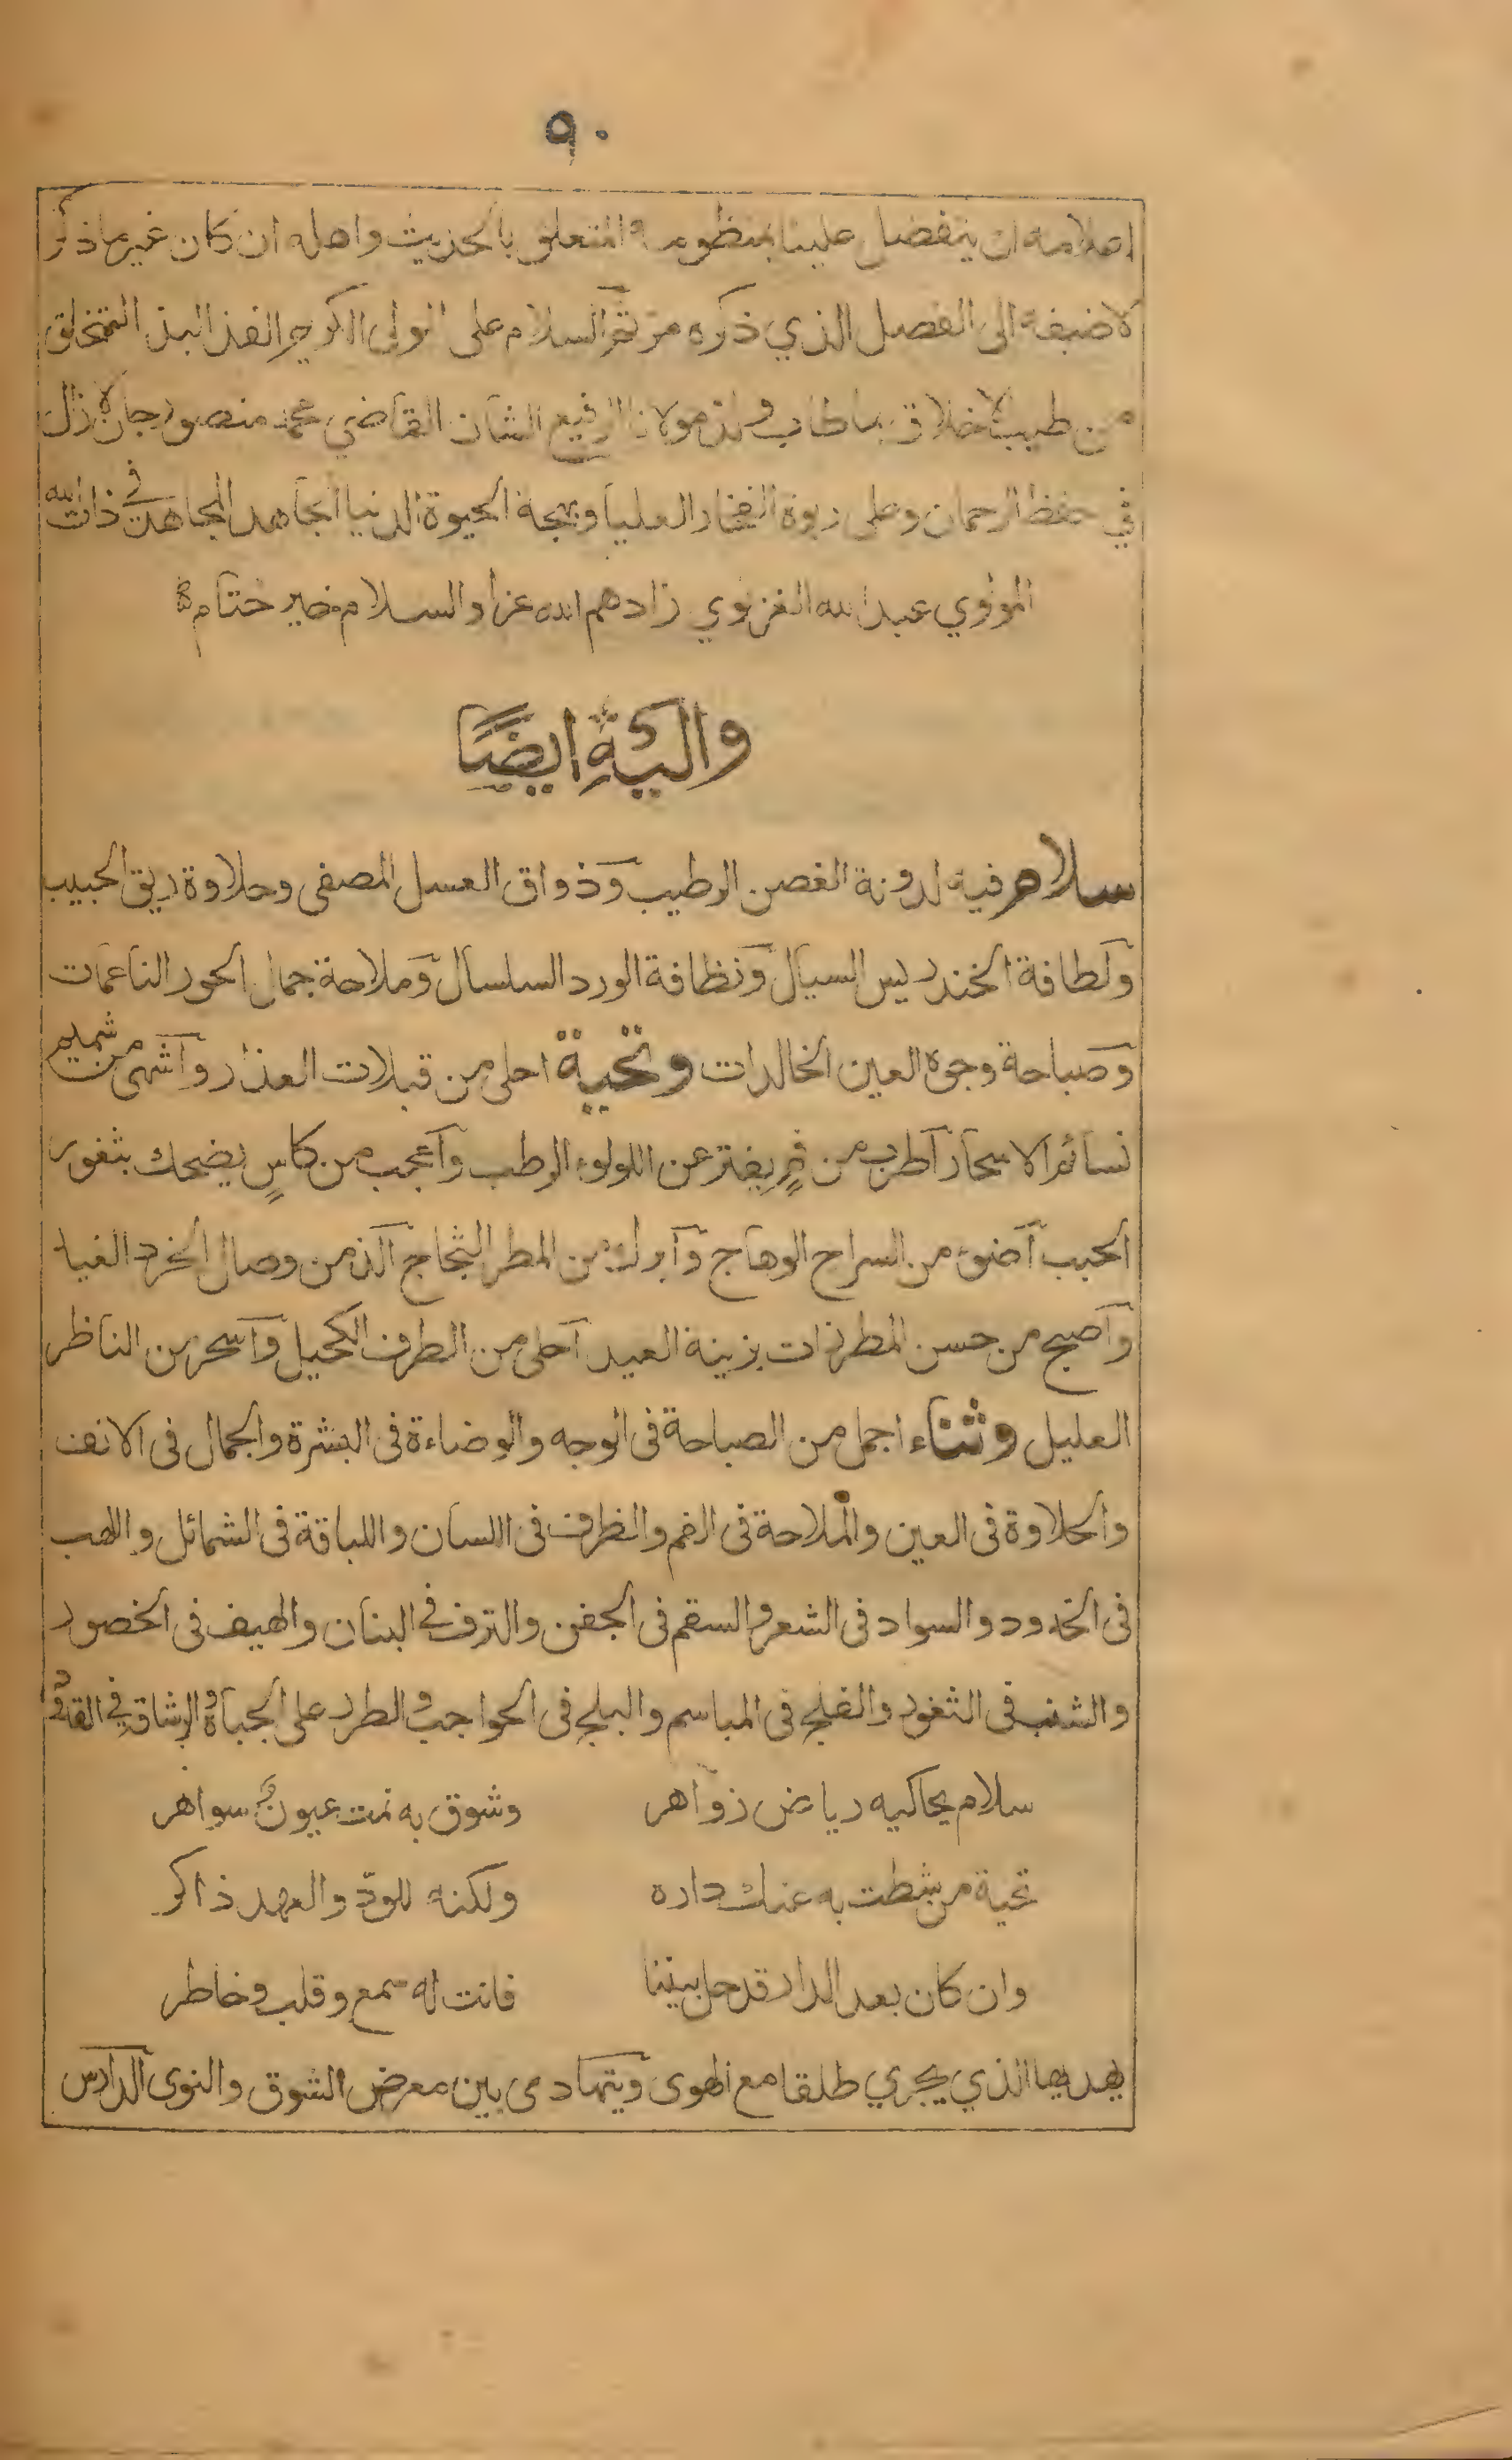 ٩٠
اعلامه ان يتفضل علينا بمنظومه المتعلق بالحديث واهله ان كان غير ما ذكر
لاضيفه الى الفصل الذي ذكره مر ثم السلام على المولى الاكرم الفذ البذ المتخلق
من طيب الاخلاق بما طاب ولذ مولانا الرفيع الشان القاضي محمد منصور جان لا زال
في حفظ الرحمان وعلى ربوة الفخار العليا وبهجة الحيوة الدنيا المجاهد المجاهد في ذات الله
المولوي عبد الله الغزنوي زادهم الله عزا والسلام خير ختام
واليه ايضًا
سلام فيه لدونة الغصن الرطيب وذواق العسل المصفى وحلاوة ريق الحبيب
ولطافة الخندريس السيال ونظافة الورد السلسال وملاحة جمال الحور الناعمات
وصباحة وجوه العين الخالدات وتحية احلى من قبلات العذار واشهى من شميم
نسائم الاسحار اطرب من فمٍ يفتر عن اللولوء الرطب واعجب من كاسٍ يضحك بثغور
الحبب اضوء من السراج الوهاج وابرك من المطر الثجاج الذ من وصال الخرد الغيد
واصبح من حسن المطرزات بزينة العيد احلى من الطرف الكحيل واسحر من الناظر
العليل وثناء اجمل من الصباحة فى الوجه والوضاءة فى البشرة والجمال فى الانف
والحلاوة فى العين والملاحة فى الفم والظرف فى اللسان واللباقة فى الشمائل واللهب
فى الخدود والسواد فى الشعر والسقم فى الجفن والترف فى البنان والهيف فى الخصور
والشنب فى الثغور والفلج فى المباسم والبلج فى الحواجب والطرر على الجباه والرشاقة فى القدود
سلام يحاكيه رياض زواهر وشوق به نمت عيونٌ سواهر
تحية من شطت به عنك داره ولكنه للودّ والعهد ذاكر
وان كان بعد الدار قد حل بيننا فانت له سمع وقلب وخاطر
يهديها الذي يجري طلقا مع الهوى ويتهادى بين معرض الشوق والنوى الدارس